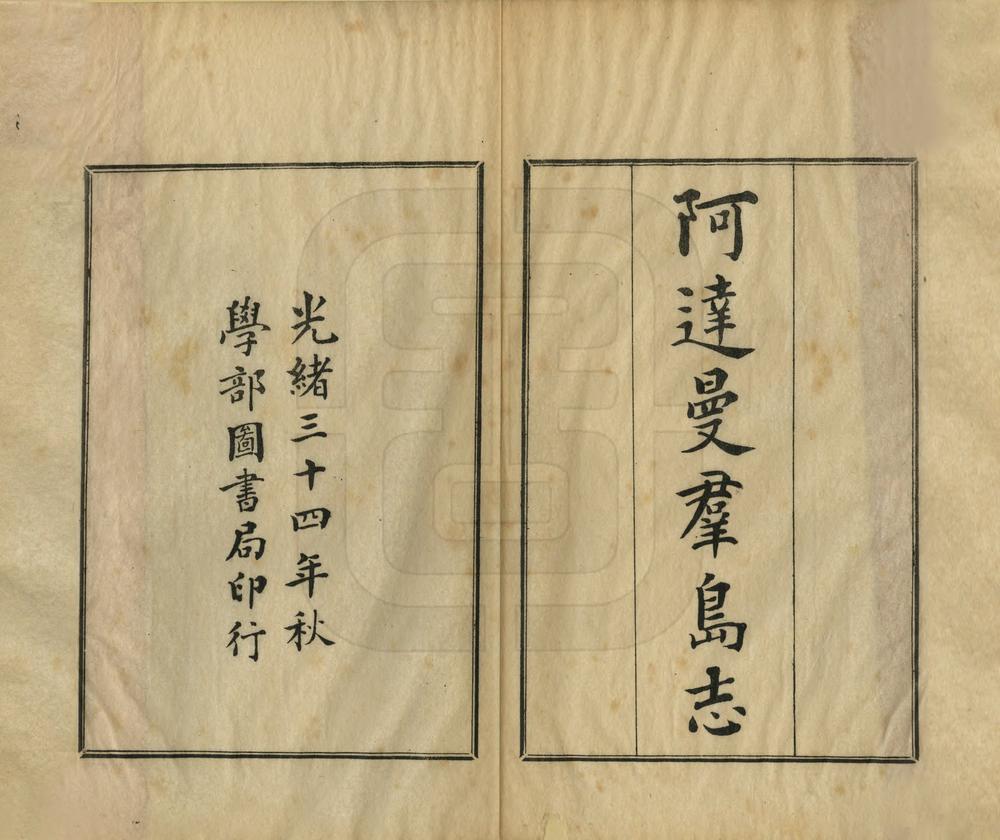 阿達曼羣島志
光緒三十四年秋
學部圖書局印行